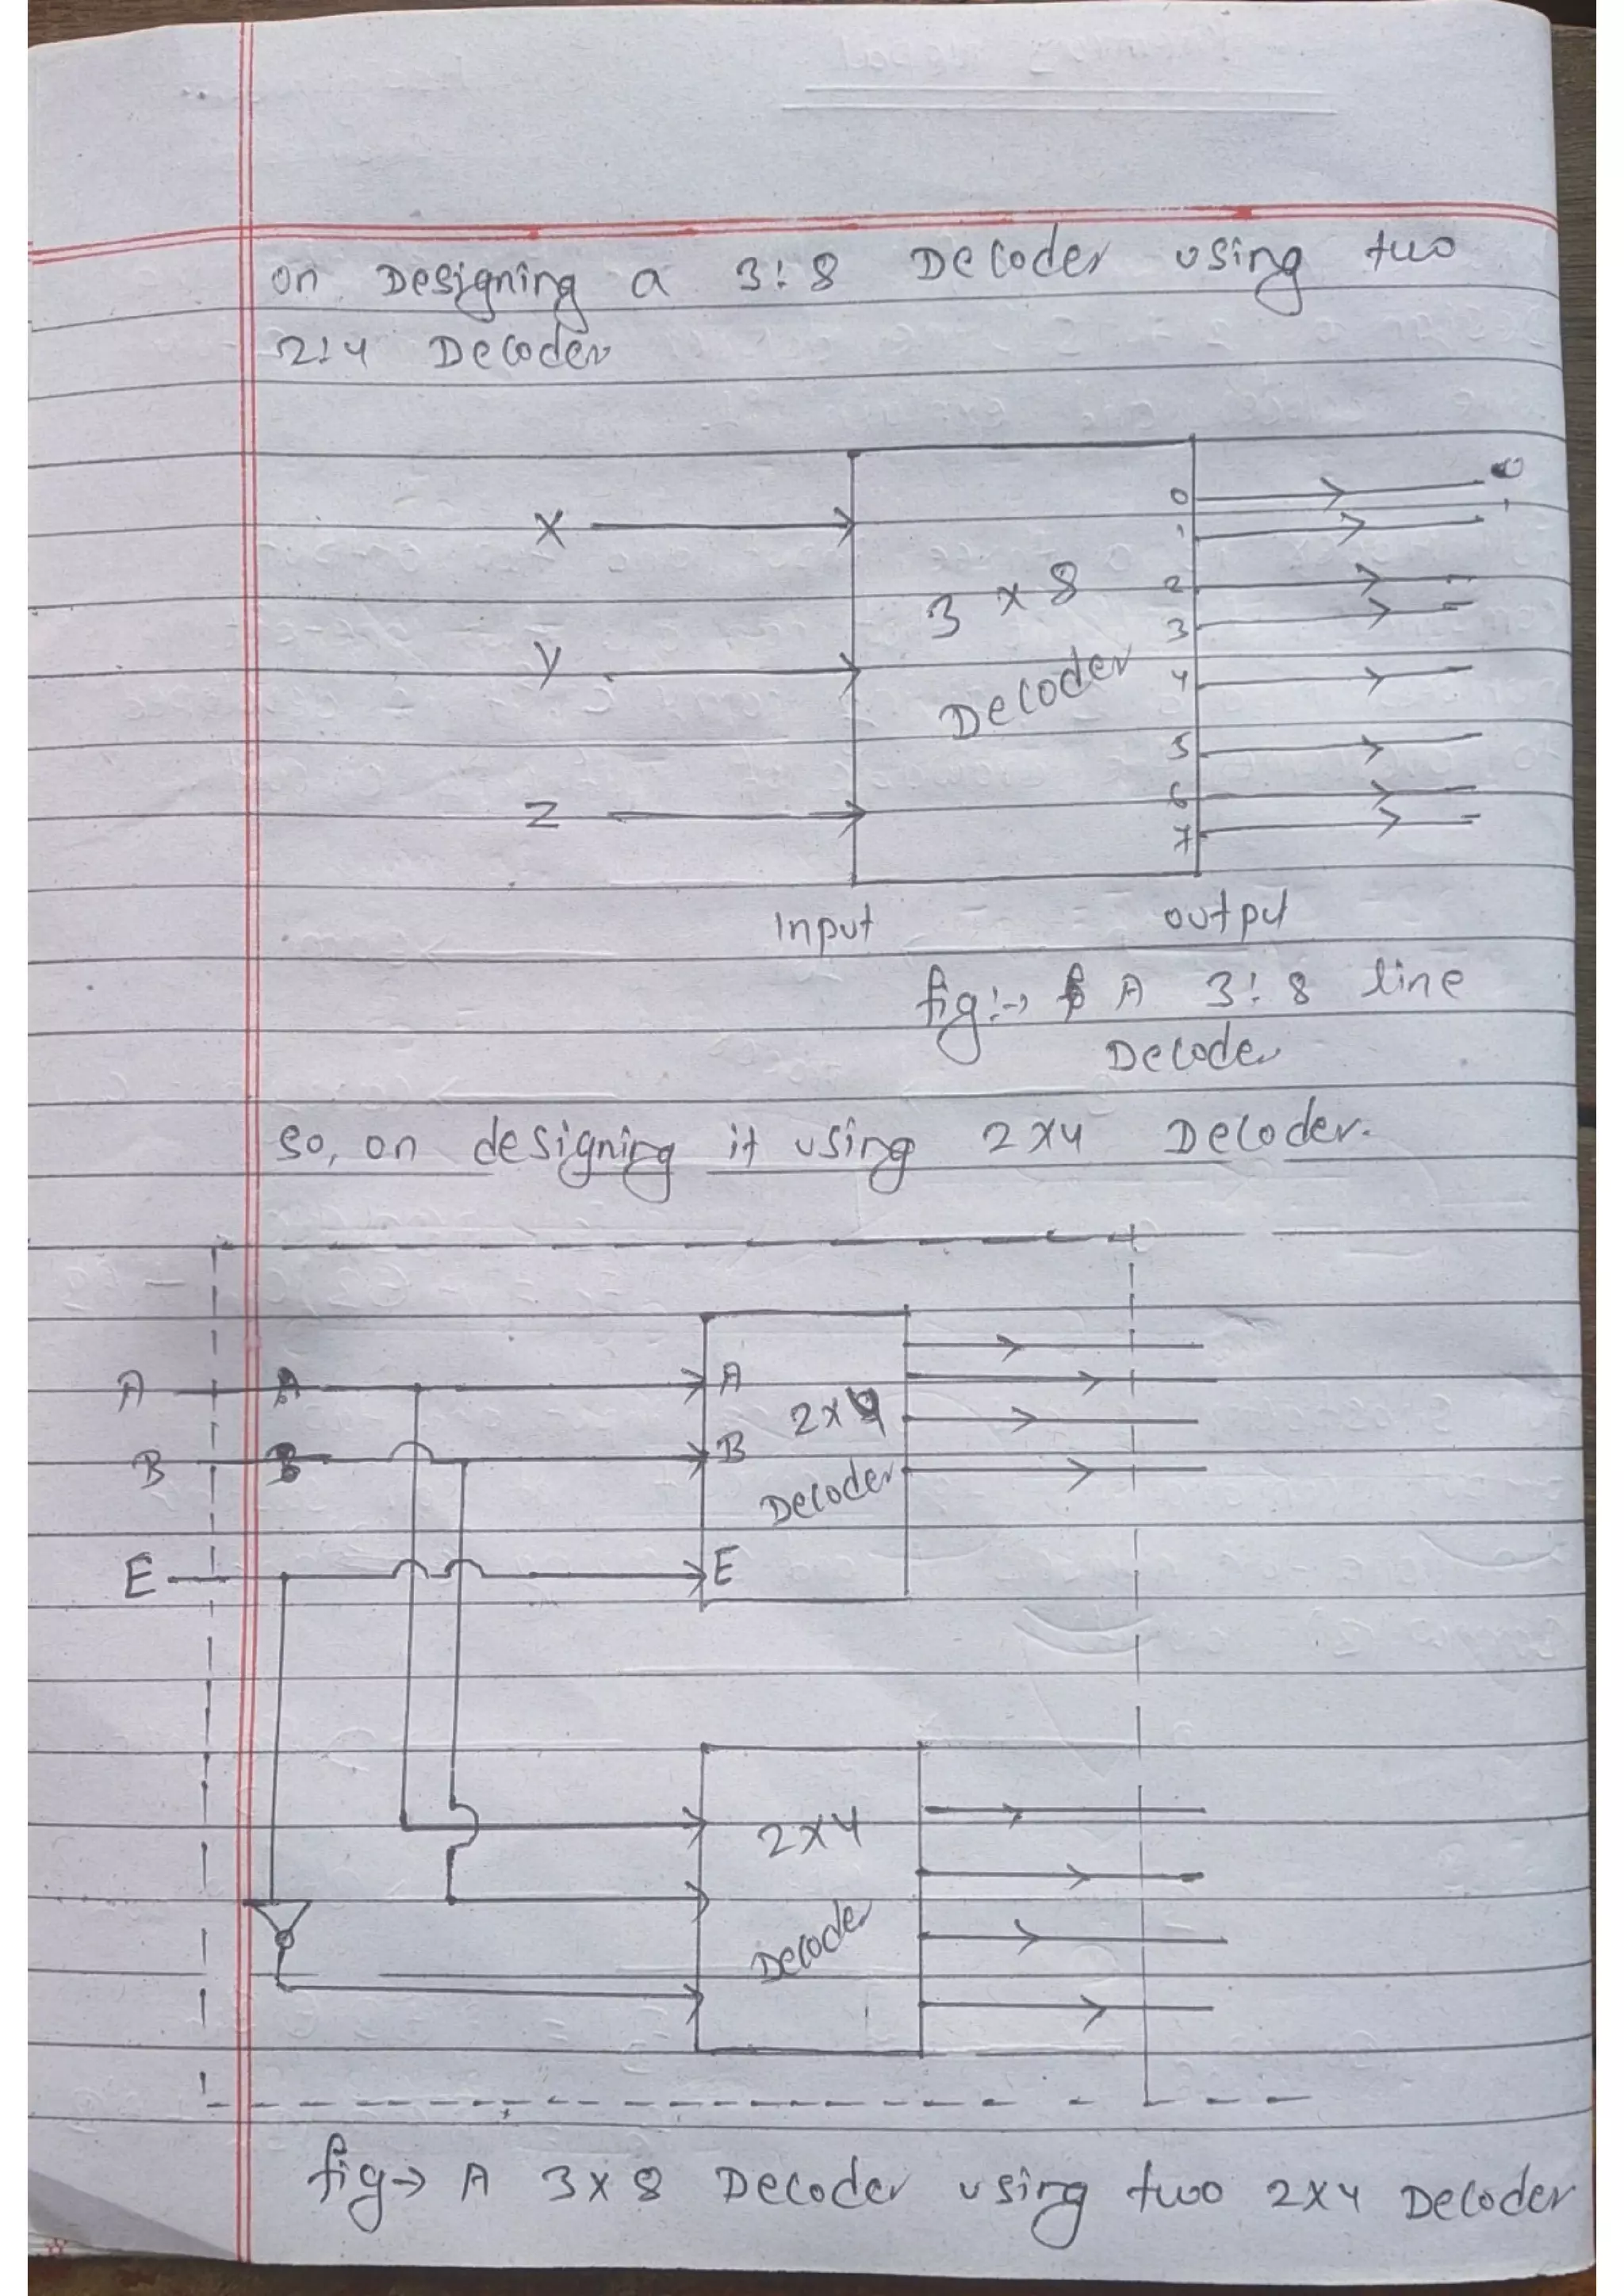 on Designing a 3:8 Decoder using two
2:4 Decoder
X
Y
Z
3 x 8
Decoder
0
1
2
3
4
5
6
7
0
1
Input
output
fig:→ A 3:8 line
Decoder
so, on designing it using 2x4 Decoder.
A
A
A
B
B
B
E
E
2x4
Decoder
2x4
Decoder
fig→ A 3x8 Decoder using two 2x4 Decoder